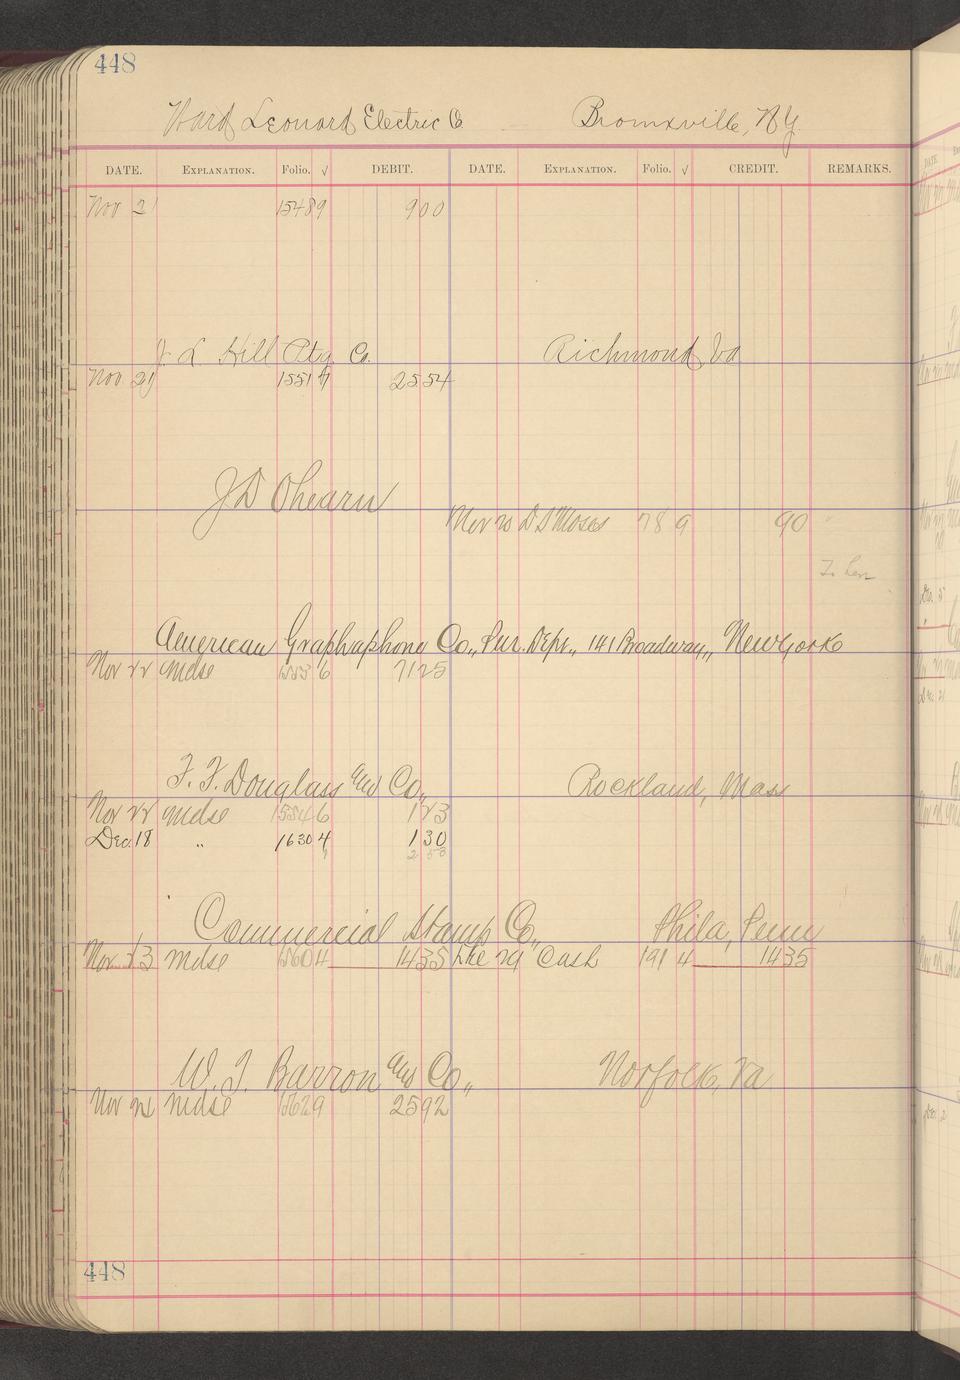 448
Ward Leonard Electric Co. Bronxville, N.Y.
DATE. EXPLANATION. Folio. √ DEBIT. DATE. EXPLANATION. Folio. √ CREDIT. REMARKS.
Nov 21 1548 9 9 00
J. L. Hill Ptg. Co. Richmond Va
Nov 21 1551 25 54
J D Ohearn
Nov D S Moses 78 9 90
American Graphaphone Co,, Pur. Dept,, 141 Broadway,, New York
Nov 22 mdse 6 71 25
F. F. Douglass and Co,, Rockland, Mass
Nov 22 mdse 1554 6 1 23
Dec. 18 " 1630 4 1 30
2 53
Commercial Stamp Co,, Phila, Penn
Nov 23 mdse 1560 4 14 35 Dec 29 Cash 191 4 14 35
W. T. Barron and Co,, Norfolk, Va
Nov mdse 1562 9 25 92
448